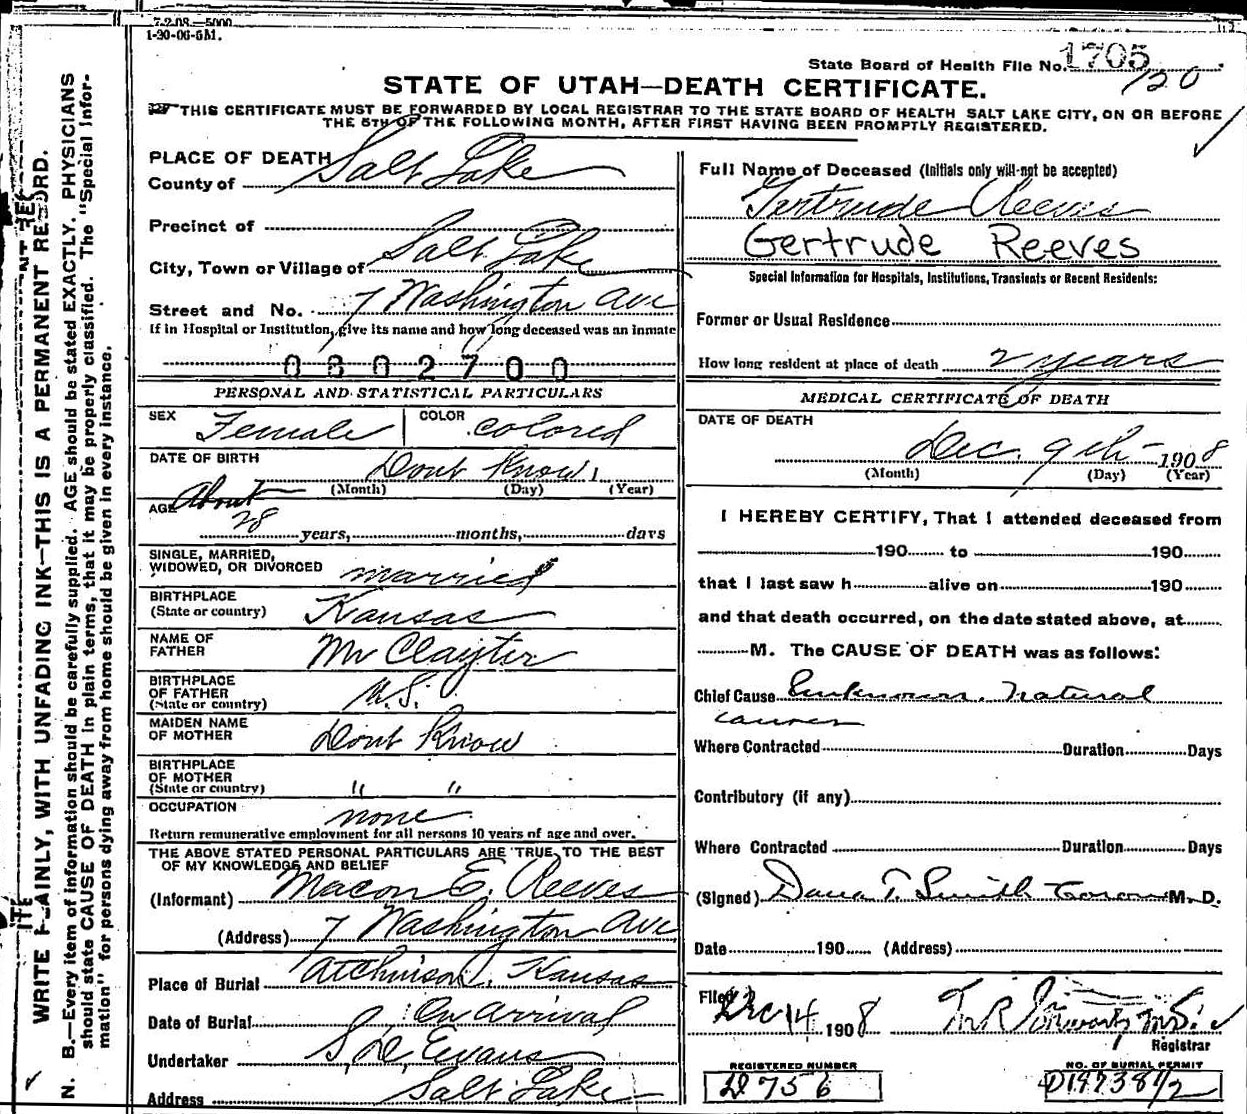 7-2-08.—5000
1-30-06-5M.
State Board of Health File No. 1705
120
STATE OF UTAH—DEATH CERTIFICATE.
THIS CERTIFICATE MUST BE FORWARDED BY LOCAL REGISTRAR TO THE STATE BOARD OF HEALTH SALT LAKE CITY, ON OR BEFORE
THE 5TH OF THE FOLLOWING MONTH, AFTER FIRST HAVING BEEN PROMPTLY REGISTERED.
PLACE OF DEATH
County of Salt Lake
Precinct of
City, Town or Village of Salt Lake
Street and No. 7 Washington Ave
If in Hospital or Institution, give its name and how long deceased was an inmate
0602700
PERSONAL AND STATISTICAL PARTICULARS
SEX Female COLOR colored
DATE OF BIRTH Dont Know
(Month) (Day) (Year)
AGE About
28 years, months, days
SINGLE, MARRIED,
WIDOWED, OR DIVORCED married
BIRTHPLACE
(State or country) Kansas
NAME OF
FATHER Mr Clayter
BIRTHPLACE
OF FATHER
(State or country) U.S.
MAIDEN NAME
OF MOTHER Dont Know
BIRTHPLACE
OF MOTHER
(State or country) " "
OCCUPATION none
Return remunerative employment for all persons 10 years of age and over.
THE ABOVE STATED PERSONAL PARTICULARS ARE TRUE TO THE BEST
OF MY KNOWLEDGE AND BELIEF
(Informant) Macon E. Reeves
(Address) 7 Washington Ave
Place of Burial Atchinson, Kansas
Date of Burial On arrival
Undertaker Evans
Address Salt Lake
Full Name of Deceased (Initials only will not be accepted)
Gertrude Reeves
Gertrude Reeves
Special Information for Hospitals, Institutions, Transients or Recent Residents:
Former or Usual Residence
How long resident at place of death 2 years
MEDICAL CERTIFICATE OF DEATH
DATE OF DEATH
Dec. 9th 1908
(Month) (Day) (Year)
I HEREBY CERTIFY, That I attended deceased from
190 to 190
that I last saw h alive on 190
and that death occurred, on the date stated above, at
M. The CAUSE OF DEATH was as follows:
Chief Cause Unknown. Natural
causes
Where Contracted Duration Days
Contributory (if any)
Where Contracted Duration Days
(Signed) Dana T. Smith Coroner M. D.
Date 190 (Address)
Filed Dec 14 1908
Registrar
REGISTERED NUMBER
D 756
NO. OF BURIAL PERMIT
WRITE PLAINLY, WITH UNFADING INK—THIS IS A PERMANENT RECORD.
N. B.—Every item of information should be carefully supplied. AGE should be stated EXACTLY. PHYSICIANS
should state CAUSE OF DEATH in plain terms, that it may be properly classified. The "Special Infor-
mation" for persons dying away from home should be given in every instance.